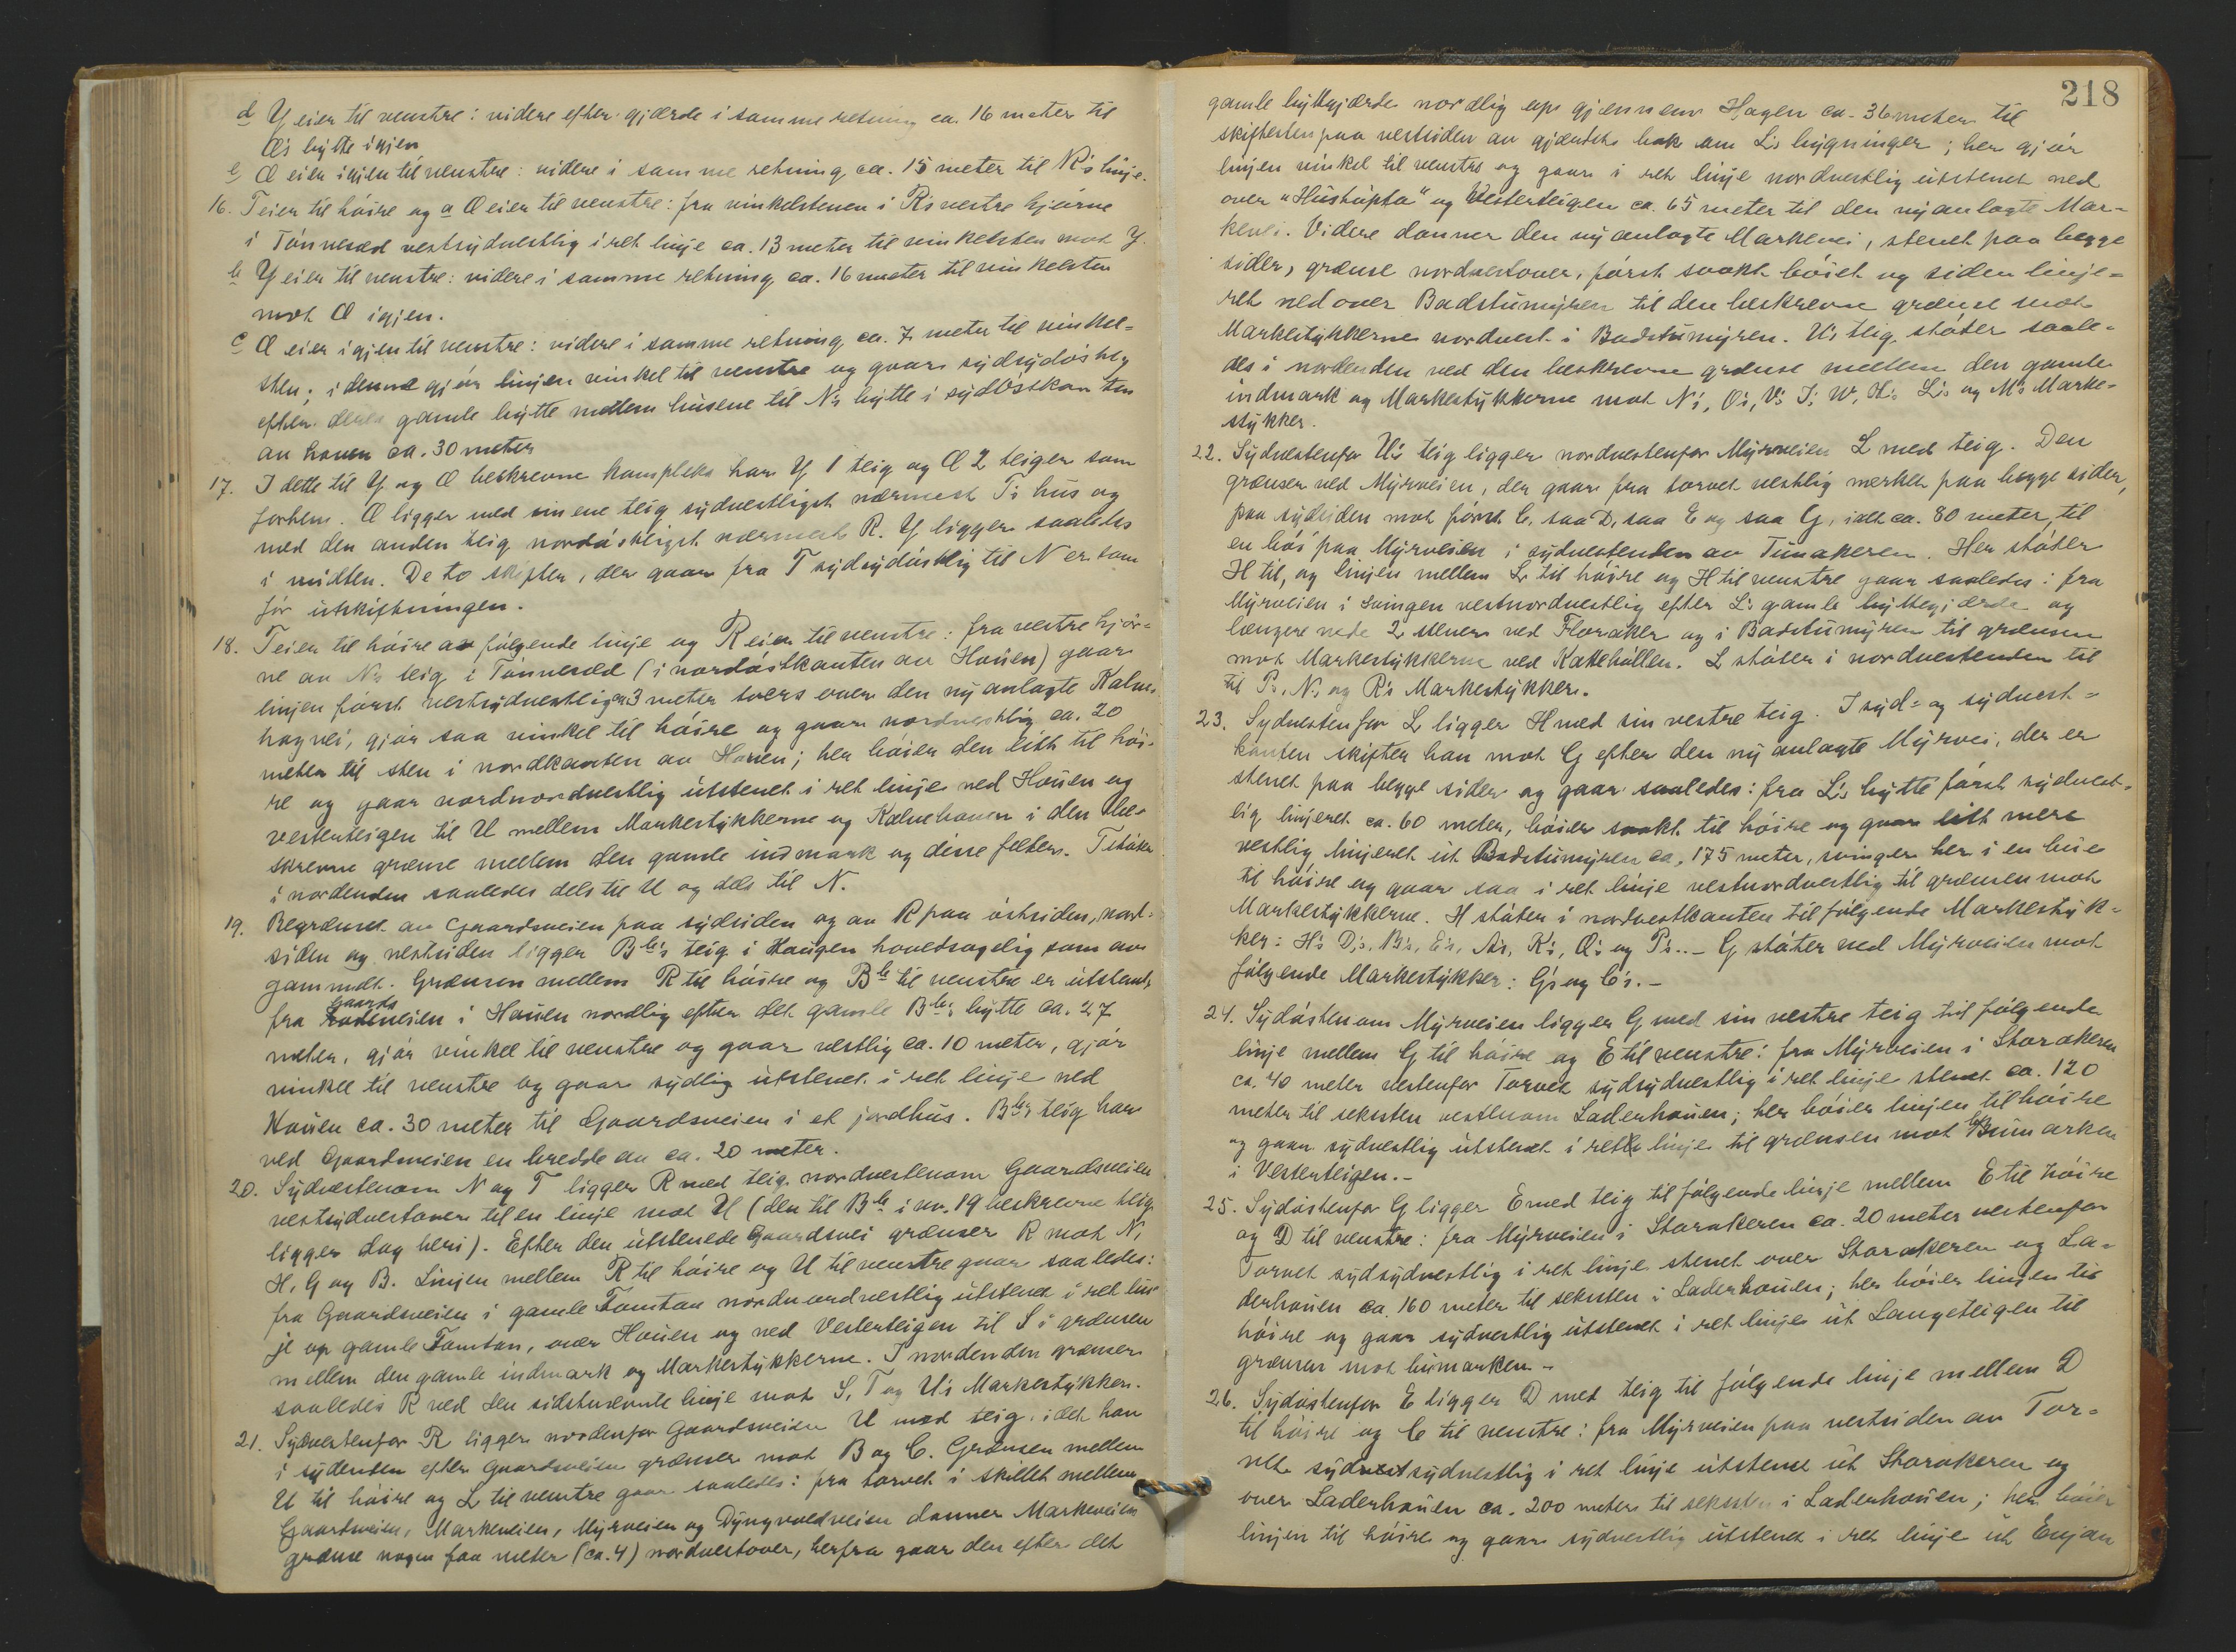 d Y eier til venstre: videre efter gjærde i samme retning ca. 16 meter til
Æ's bytte igjen
e Æ eier igjen til venstre: videre i samme retning ca. 15 meter til R's linje.
16. T eier til høire og a Æ eier til venstre: fra vinkelstenen i R's vestre hjørne
i Tønneræd vestsydvestlig i ret linje ca. 13 meter til vinkelsten mot Y.
b Y eier til venstre: videre i samme retning ca. 16 meter til vinkelsten
mot Æ igjen.
c Æ eier igjen til venstre: videre i samme retning ca. 7 meter til vinkel=
sten; i denne gjør linjen vinkel til venstre og gaar sydsydøstlig
efter deres gamle bytte mellem husene til N's bytte i sydøstkanten
av haven ca. 30 meter
17. I dette til Y og Æ beskrevne kompleks har Y 1 teig og Æ 2 teiger som
forhen. Æ ligger med sin ene teig sydvestligst nærmest T's hus og
med den anden teig nordøstligst nærmest R. Y ligger saaledes
i midten. De to skifter, der gaar fra T sydsydøstlig til N er som
før utskiftningen.
18. T eier til høire av følgende linje og R eier til venstre: fra vestre hjør=
ne av N's teig i Tønneræd (i nordøstkanten av Houen) gaar
linjen først vestsydvestlig ca 3 meter tvers over den nyanlagte Kalve
hagvei, gjør saa vinkel til høire og gaar nordvestlig ca. 20
meter til sten i nordkanten av Houen; her bøier den litt til høi=
re og gaar nordnordvestlig utstenet i ret linje ned Houen og
vesterteigen til U mellem Markestykkerne og Kalvehaven i den be=
skrevne grænse mellem den gamle indmark og disse felter. T støter
i nordenden saaledes dels til U og dels til N.
19. Begrænset av Gaardsveien paa sydsiden og av R paa østsiden, nord=
siden og vestsiden ligger Bb's teig i Haugen hovedsagelig som av
gammelt. Grænsen mellem R til høire og Bb til venstre er utstenet
fra Gaardsveien i Houen nordlig efter det gamle Bb's bytte ca. 27
meter, gjør vinkel til venstre og gaar vestlig ca. 10 meter, gjør
vinkel til venstre og gaar sydlig utstenet i ret linje ned
Houen ca. 30 meter til Gaardsveien i et jordhus. Bb's teig har
ved Gaardsveien en bredde av ca. 20 meter.
20. Sydvestenom N og T ligger R med teig nordvestenom Gaardsveien
vestsydvestover til en linje mot U (den til Bb i nr. 19 beskrevne teig
ligger dog heri). Efter den utstenede Gaardsvei grænser R mot N,
H, G og B. Linjen mellem R til høire og U til venstre gaar saaledes:
fra Gaardsveien i gamle Tomtan nordnordvestlig utstenet i ret lin=
je op gamle Tomtan, over Houen og ned Vesterteigen til S i grænsen
mellem den gamle indmark og Markestykkerne. I nordenden grænser
saaledes R ved den sidstnævnte linje mot S, T og U's Markestykker.
21. Sydvestenfor R ligger nordenfor Gaardsveien U med teig, idet han
i sydenden efter Gaardsveien grænser mot B og C. Grænsen mellem
U til høire og L til venstre gaar saaledes: fra torvet i skillet mellem
Gaardsveien, Markeveien, Myrveien og Dyngvoldveien danner Markeveien
grænse nogen faa meter (ca. 4) nordvestover, herfra gaar den efter det
218
gamle byttegjærde nordlig op gjennem Hagen ca. 36 meter til
skiftesten paa vestsiden av gjærdets bak om L's bygninger; her gjør
linjen vinkel til venstre og gaar i ret linje nordvestlig utstenet ned
over "Hustupta" og Vesterteigen ca. 65 meter til den nyanlagte Mar=
kevei. Videre danner den nyanlagte Markevei, stenet paa begge
sider, grænse nordvestover, først svakt bøiet og siden linje=
ret ned over Badstumyren til den beskrevne grænse mot
Markestykkerne nordvest i Badstumyren. U's teig støter saale=
des i nordenden ved den beskrevne grænse mellem den gamle
indmark og Markestykkerne mot N's, O's, V's, J's, W, H's L's og M's Marke=
stykker.
22. Sydvestenfor U's teig ligger nordvestenfor Myrveien L med teig. Den
grænser ved Myrveien, der gaar fra torvet vestlig merket paa begge sider,
paa sydsiden mot først C, saa D, saa E og saa G, ialt ca. 80 meter, til
en bøi paa Myrveien i sydvestenden av Tunakeren. Her støter
H til, og linjen mellem L til høire og H til venstre gaar saaledes: fra
Myrveien i svingen vestnordvestlig efter L's gamle byttegjærde og
længere nede 2 stener ved Floraker og i Badstumyren til grænsen
mot Markestykkerne ved Kattehollen. L støter i nordvestenden til
til P's, N's og R's Markestykker.
23. Sydvestenfor L ligger H med sin vestre teig. I syd= og sydvest=
kanten skifter han mot G efter den nyanlagte Myrvei, der er
stenet paa begge sider og gaar saaledes: fra L's bytte først sydvest=
lig linjeret ca. 60 meter, bøier svakt til høire og gaar litt mere
vestlig linjeret ut Badstumyren ca. 175 meter, svinger her i en bue
til høire og gaar saa i ret linje vestnordvestlig til grænsen mot
Markestykkerne. H støter i nordvestkanten til følgende Markestyk=
ker: H's D's, B's, E's, A's, K's, Q's og P's. – G støter ved Myrveien mot
følgende Markestykker: G's og C's. –
24. Sydøstenom Myrveien ligger G med sin vestre teig til følgende
linje mellem G til høire og E til venstre: fra Myrveien i Storakeren
ca. 40 meter vestenfor Torvet sydsydvestlig i ret linje stenet ca. 120
meter til seksten vestenom Laderhouen; her bøier linjen til høire
og gaar sydvestlig utstenet i ret linje til grænsen mot Bumarken
i Vesterteigen. –
25. Sydøstenfor G ligger E med teig til følgende linje mellem E til høire
og D til venstre: fra Myrveien i Storakeren ca. 20 meter vestenfor
Torvet sydsydvestlig i ret linje stenet over Storakeren og La=
derhouen ca. 160 meter til seksten i Laderhouen; her bøier linjen til
høire og gaar sydvestlig utstenet i ret linje ut Langeteigen til
grænsen mot bumarken. –
26. Sydøstenfor E ligger D med teig til følgende linje mellem D
til høire og C til venstre: fra Myrveien paa vestsiden av Tor=
vet sydsydvestlig i ret linje utstenet ut Storakeren og
over Laderhouen ca. 200 meter til seksten i Laderhouen; her bøier
linjen til høire og gaar sydvestlig utstenet i ret linje ut Enjan